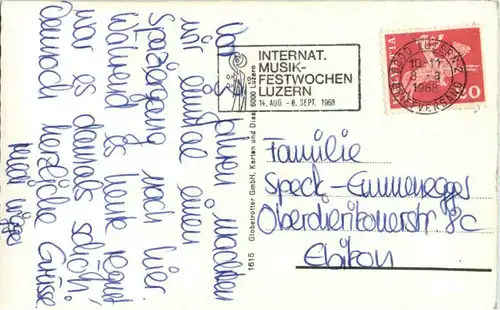 Vor Jahren machten
wir einmal einen
Spaziergang nach hier.
Während es heute regnet
war es damals schön.
Dennoch herzliche Grüsse
INTERNAT.
MUSIK-
FESTWOCHEN
LUZERN
14. AUG. - 8. SEPT. 1968
6000 LUZERN 2
10-11
1968
BRIEFVERSAND
HELVETIA
1615 Globetrotter GmbH, Karten und Dias 6000 Luzern
Familie
Speck-Emmenegger
Oberdierikonerstr. 8c
Ebikon